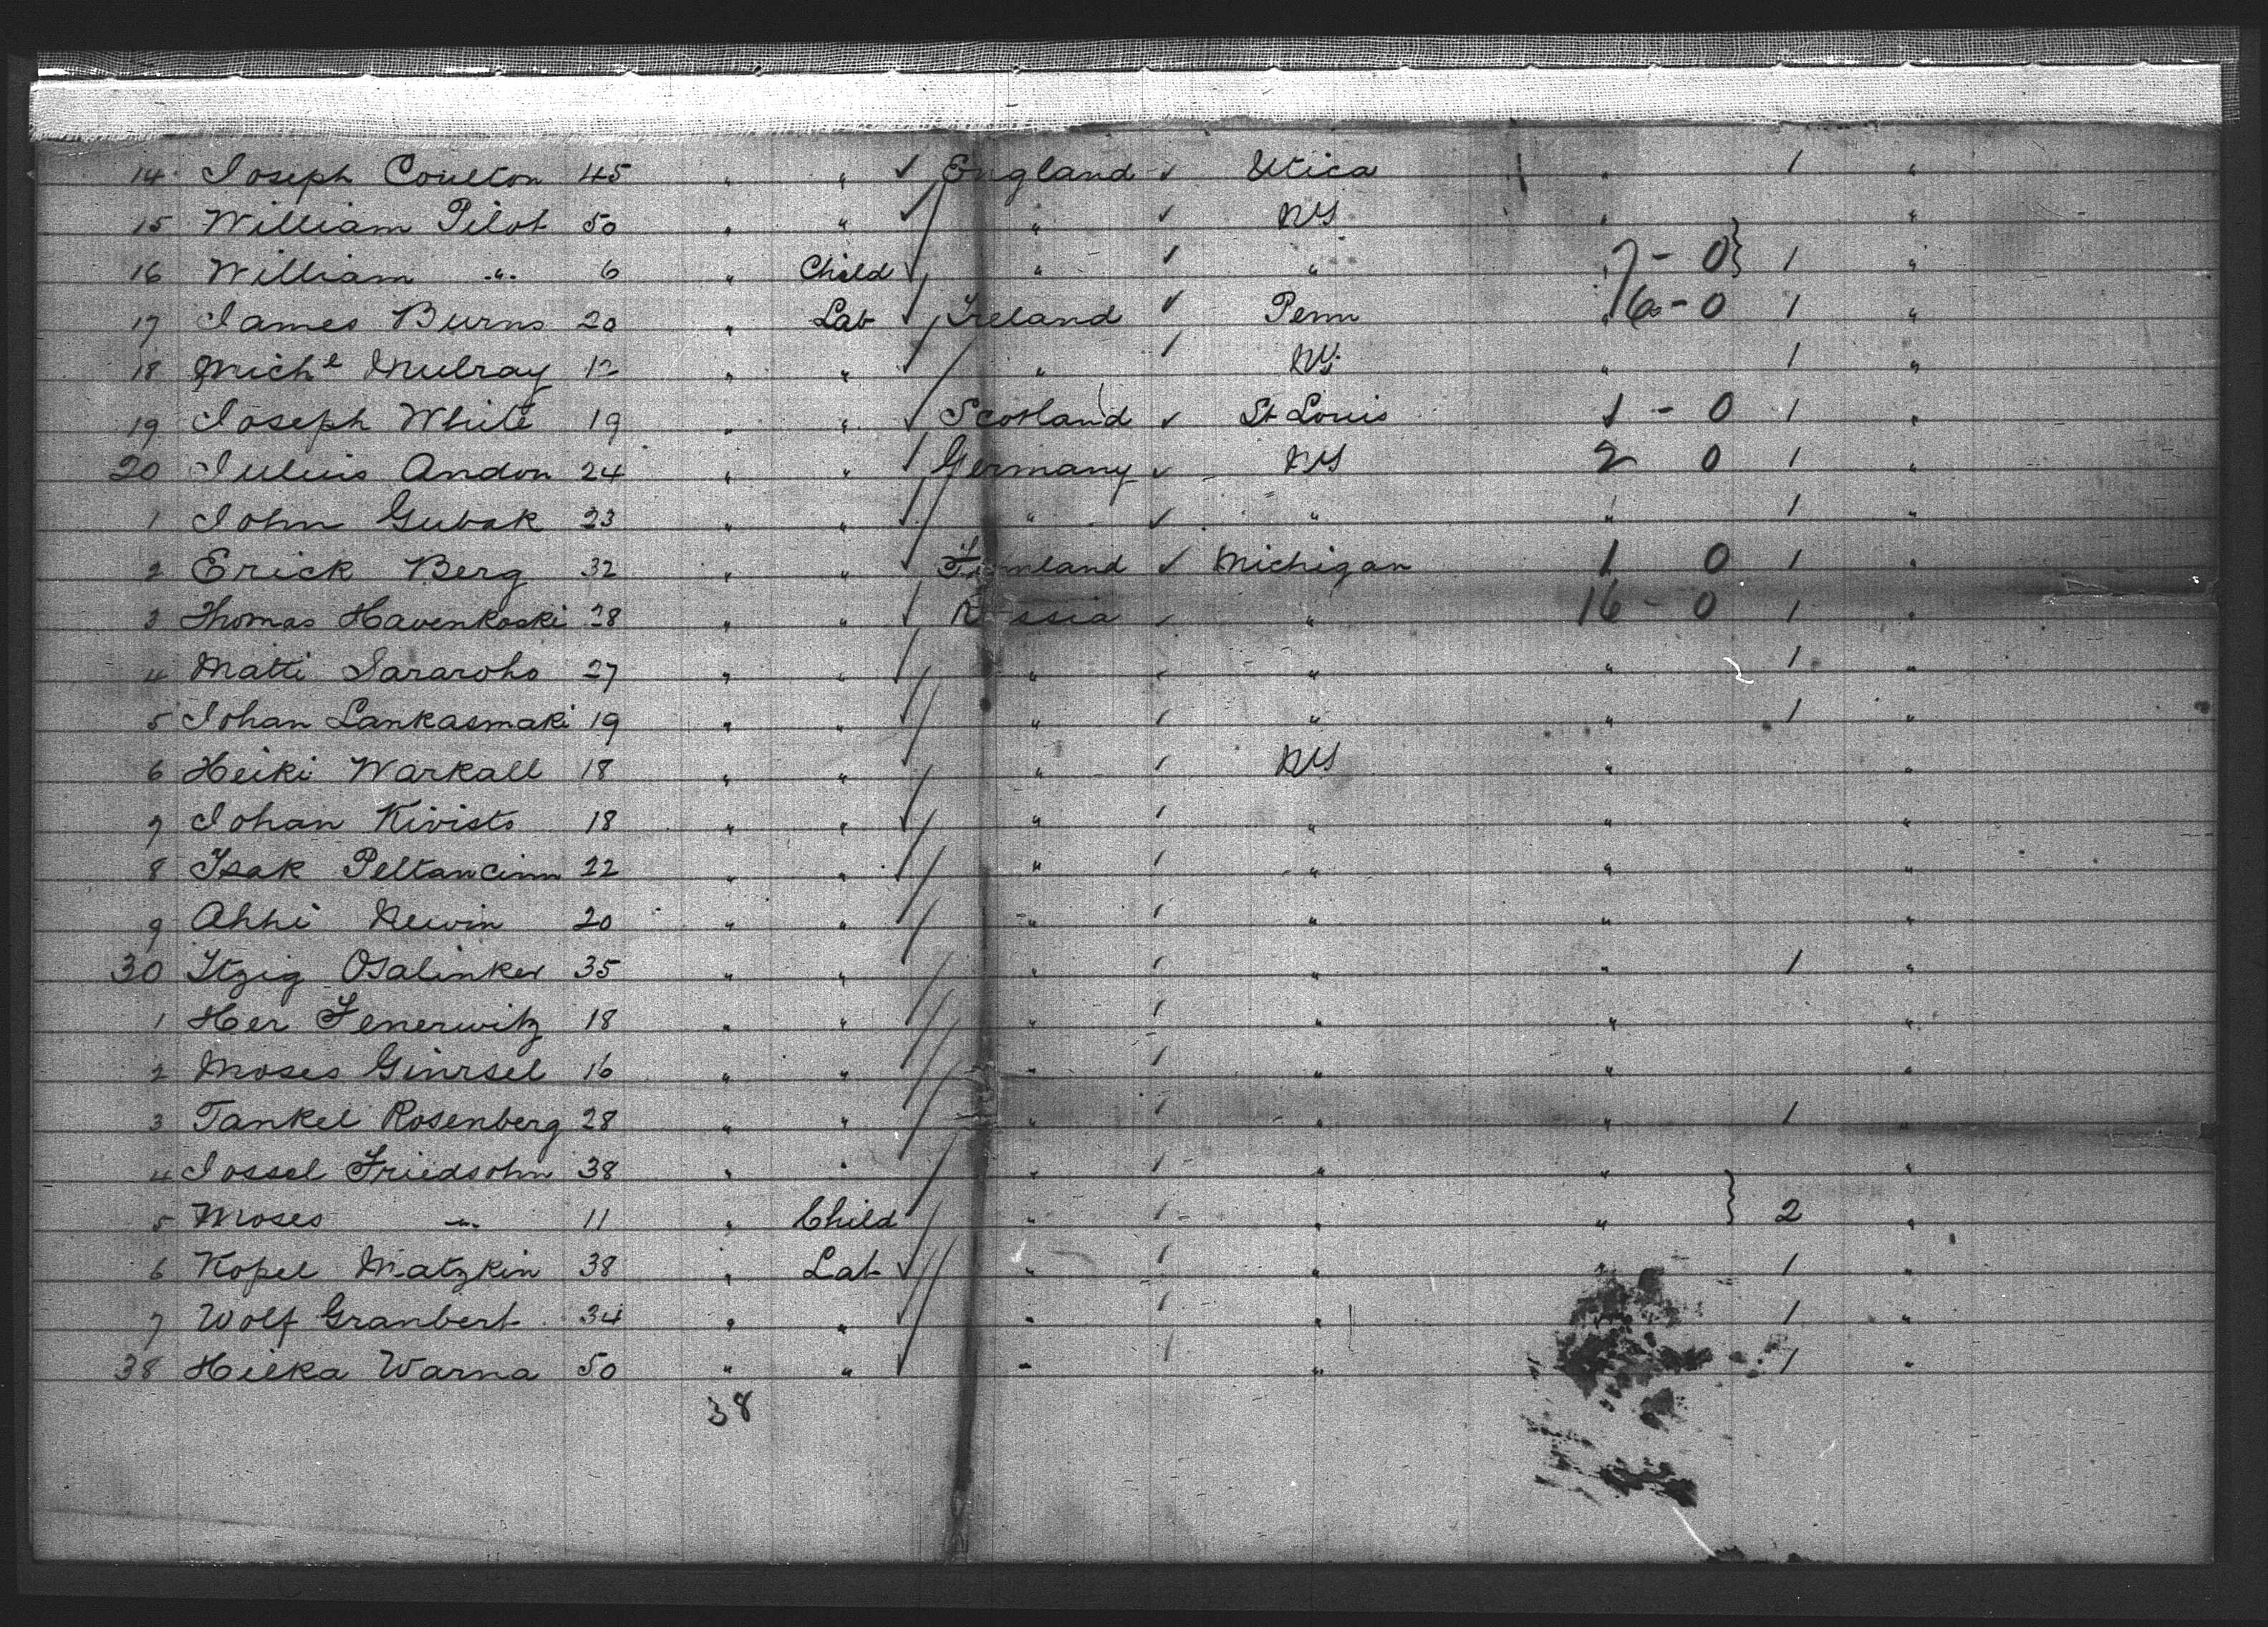 14 Joseph Coulton 45 " " ✓ England ✓ Utica " 1 "
15 William Pilot 50 " " ✓ " ✓ NY " "
16 William " 6 " Child ✓ " ✓ " 7 - 0 } 1 "
17 James Burns 20 " Lab ✓ Ireland ✓ Penn " 16 - 0 1 "
18 Michl Mulray 12 " " ✓ " ✓ NY " 1 "
19 Joseph White 19 " " ✓ Scotland ✓ St Louis 1 - 0 1 "
20 Julius Andon 24 " " ✓ Germany ✓ NY 2 0 1 "
1 John Gubak 23 " " ✓ " ✓ " " 1 "
2 Erick Berg 32 " " ✓ Finnland ✓ Michigan 1 0 1 "
3 Thomas Havenkoski 28 " " ✓ Russia ✓ " 16 - 0 1 "
4 Matti Sararoho 27 " " ✓ " ✓ " " 1 "
5 Johan Lankasmaki 19 " " ✓ " ✓ " " 1 "
6 Heiki Warkall 18 " " ✓ " ✓ NY " "
7 Johan Kivisto 18 " " ✓ " ✓ " " "
8 Isak Peltancinn 22 " " ✓ " ✓ " " "
9 Ahhi Newin 20 " " ✓ " ✓ " " "
30 Itzig Osalinker 35 " " " ✓ " " 1 "
1 Her Fenerwitz 18 " " " ✓ " " "
2 Moses Ginrsel 16 " " " ✓ " " "
3 Tankel Rosenberg 28 " " " ✓ " " 1 "
4 Jossel Friedsohn 38 " " " ✓ " " "
5 Moses " 11 " Child ✓ " ✓ " " } 2 "
6 Kopel Matzkin 38 " Lab ✓ " ✓ " 1 "
7 Wolf Granbert 34 " " ✓ " ✓ " 1 "
38 Hilka Warna 50 " " ✓ " ✓ " 1 "
38